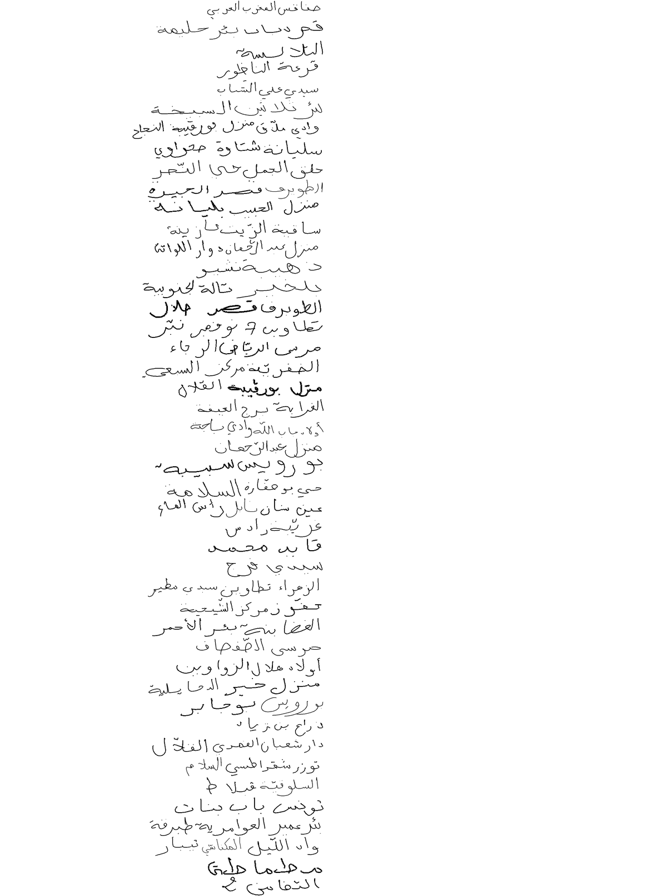 صفاقس المغرب العربي
قصر دباب بئر حليمة
الثلالسة
قرعة الناظور
سيدي علي الشباب
بئر ثلاثين السبخة
وادي ملاق منزل بورقيبة النجاح
سليانة شتاوة صحراوي
حلق الجمل حي النصر
الطويرف قصر الجيرة
منزل الحبيب بليانة
ساقية الزيت فازينة
منزل عبد الرحمان دوار اللواتة
ذهيبة نشيو
بلخير تالة الجنوبية
الطويرف قصر هلال
تطاوين 7 نوفمبر نبّر
مرسى الرياض الرجاء
الصفرية مركز السبعي
منزل بورقيبة القلال
الغرابة برج العيفة
أولاد جاب الله وادي باجة
منزل عبد الرحمان
بورويس سبيبة
حي بوحجارة السلامة
عين سنان بابل راس الماء
رادس
قايد محمد
سيدي فرج
الزهراء تطاوين سيدي مطير
حفوز مركز الشيحية
الغضابنة بئر الأحمر
مرسى الصفصاف
أولاد هلال الزواوين
منزل خير الدخايلية
بورويس بوجابر
ذراع بن زياد
دار شعبان الفهري الفلال
توزر شقراطسي السلام
السلوقية قبلاط
تونس باب بنات
بئر عمير العوامرية طبرقة
واد الليل المكناسي تيبار
مطماطة
التضامن 2